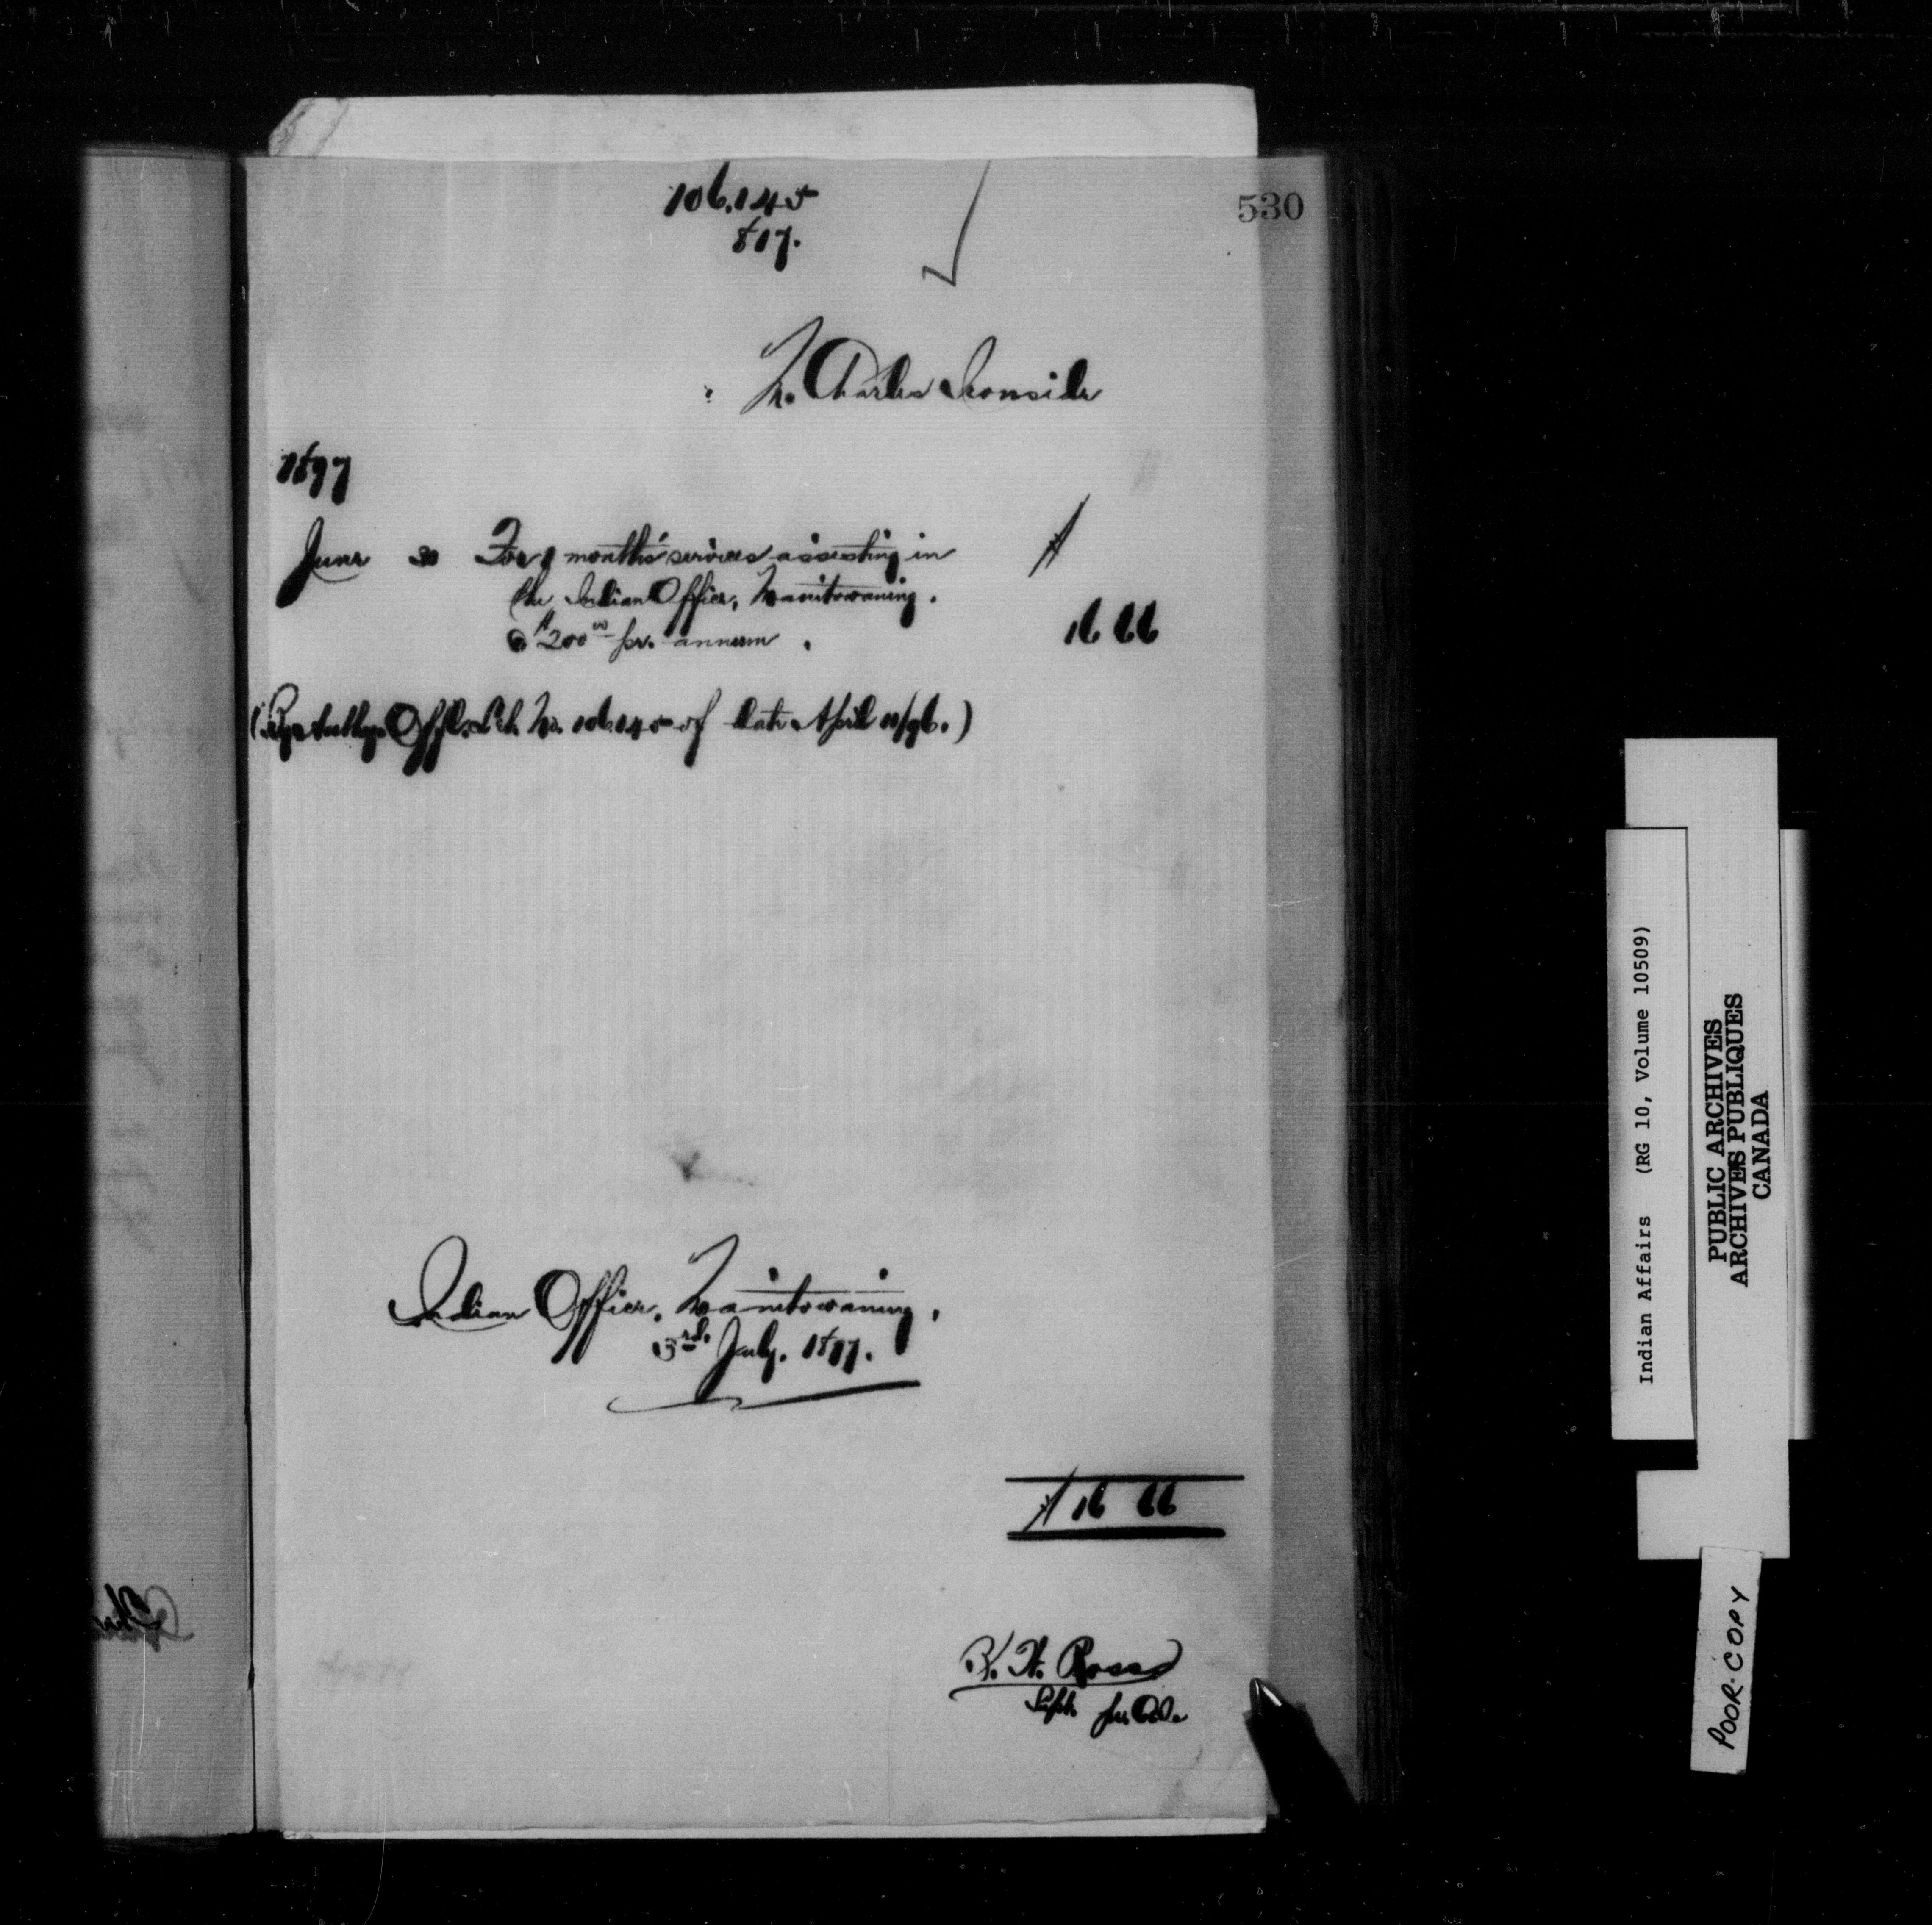 530
106.145
817.
Mr. Charles Ironside
1897
June 30 For 1 month's services assisting in $
the Indian Office, Manitowaning.
@ $200 00 pr. annum. 16 66
(By Authy. Offl. Let. No. 106.145 of date April 11/96.)
Indian Office, Manitowaning,
3rd. July. 1897.
$ 16 66
B. W. Ross
Supt.
Indian Affairs (RG 10, Volume 10509)
PUBLIC ARCHIVES
ARCHIVES PUBLIQUES
CANADA
POOR COPY